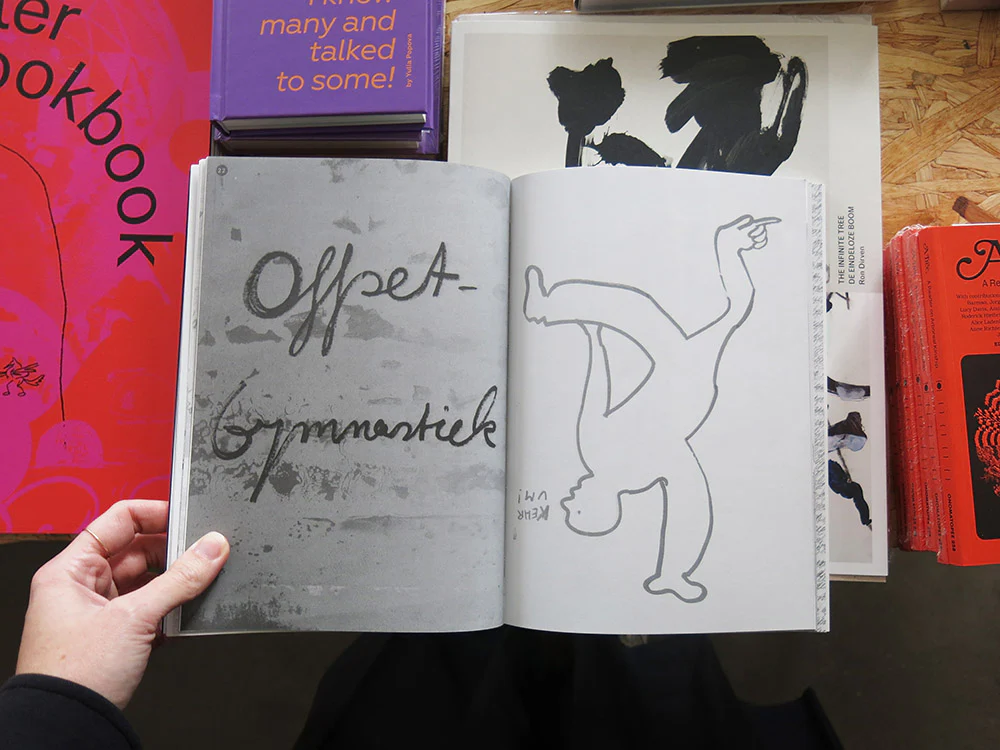 ookbook
I know
many and
talked
to some!
by Yulia Popova
THE INFINITE TREE
DE EINDELOZE BOOM
Ron Dirven
Offset-
Gymnastiek
KEHR
UM!
A Re